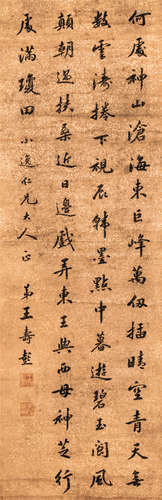 何處神山滄海東巨峰萬仞插晴空青天無
數雲濤捲下視辰韓墨點中暮遊碧玉閬風
顛朝過扶桑近日邊戲弄東王與西母神芝行
處滿瓊田 小逸仁兄大人正
弟王壽彭